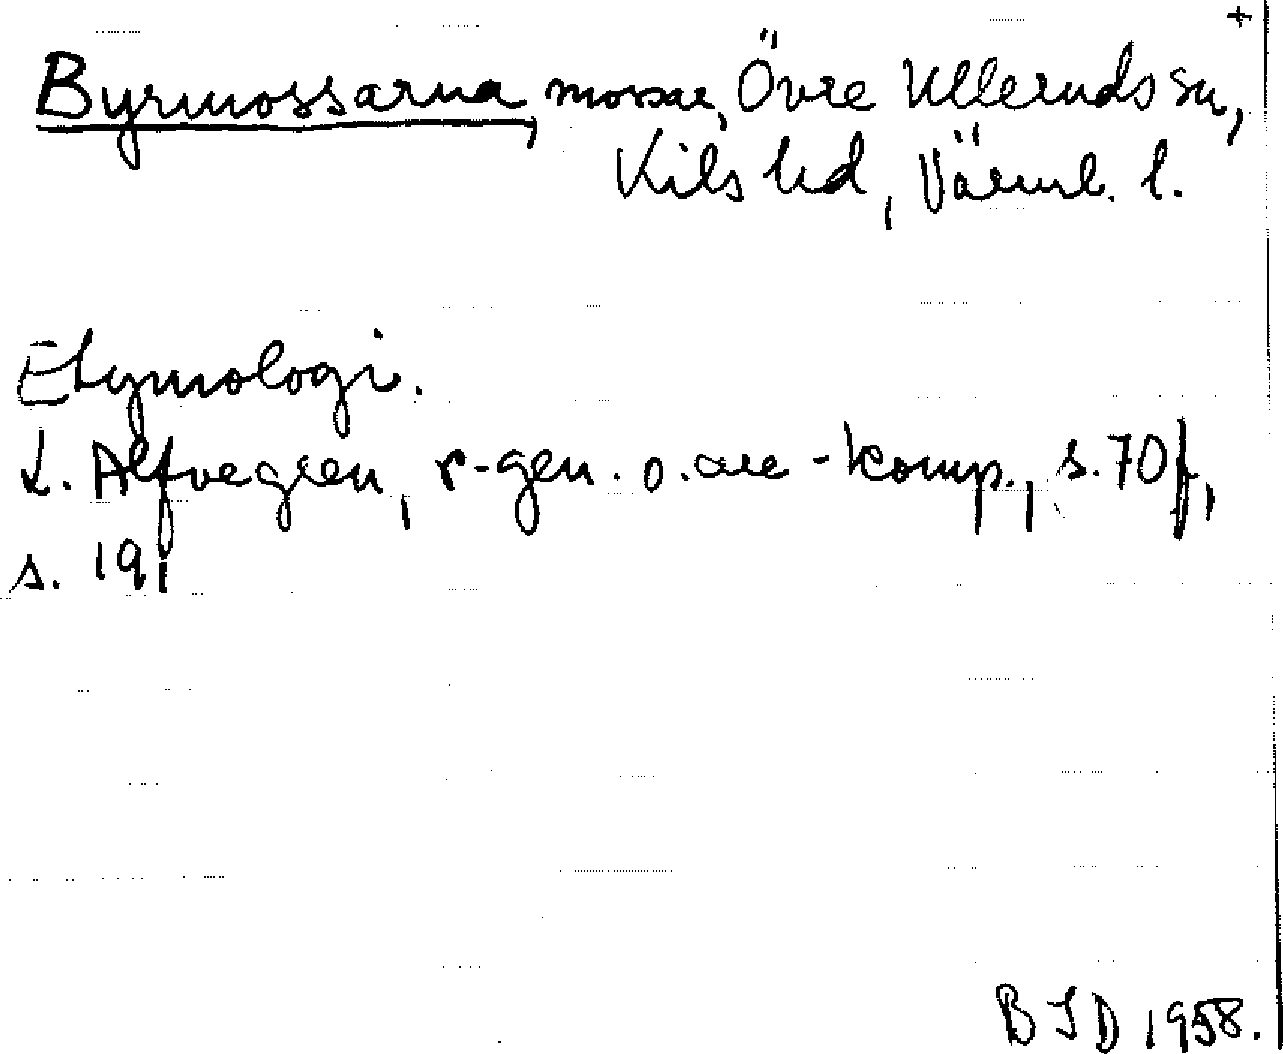 +
Byrmossarna, mossar, Övre Ulleruds sn,
Kils hd, Värml. l.
Etymologi.
L. Alfvegren, r-gen. o. are-komp., s. 70 f,
s. 19,
B I D 1958.